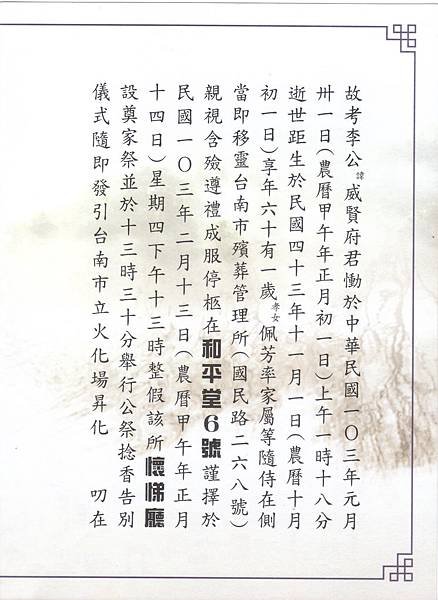 故考李公諱威賢府君慟於中華民國一〇三年元月
卅一日(農曆甲午年正月初一日)上午一時十八分
逝世距生於民國四十三年十一月一日(農曆十月
初一日)享年六十有一歲孝女佩芳率家屬等隨侍在側
當即移靈台南市殯葬管理所(國民路二六八號)
親視含殮遵禮成服停柩在和平堂6號謹擇於
民國一〇三年二月十三日(農曆甲午年正月
十四日)星期四下午十三時整假該所懷悌廳
設奠家祭並於十三時三十分舉行公祭捻香告別
儀式隨即發引台南市立火化場昇化　叨在